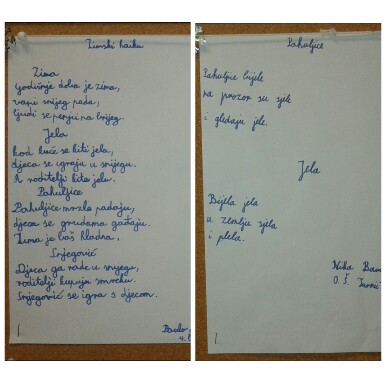 Zimski haiku
Zima
Godišnje doba je zima,
vani snijeg pada,
ljudi se penju na brijeg.
Jela
kod kuće se kiti jela,
djeca se igraju u snijegu.
A roditelji kite jelu.
Pahuljice
Pahuljice mrzle padaju,
djeca se grudama gađaju.
Zima je baš hladna.
Snjegović
Djeca ga rade u snijegu,
roditelji kupuju smrčku.
Snjegović se igra s djecom.
Pahuljice
Pahuljice bijele
na prozor su sjele
i gledaju jele.
Jela
Bijela jela
u zemlju sjela
i plela.
Nika
O. Š.